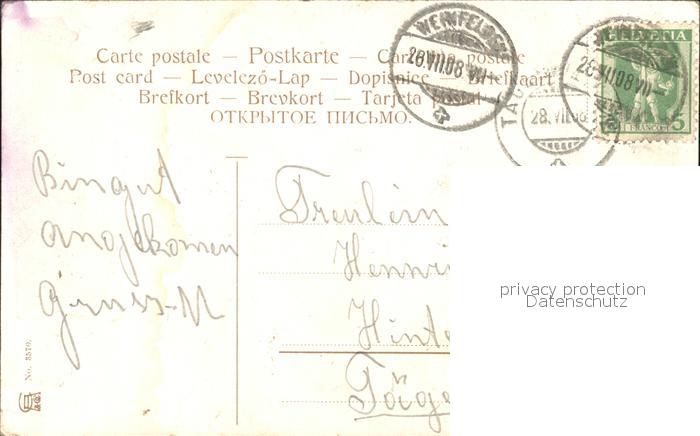 Carte postale — Postkarte — Cartolina postale
Post card — Levelező-Lap — Dopisnice — Briefkaart
Brefkort — Brevkort — Tarjeta postal
ОТКРЫТОЕ ПИСЬМО.
WEINFELDEN
28.VII.08.VII
HELVETIA
28.VII.08.VII
5
28.VII.08
Bin gut
angekomen
Gruss
Freulein
Henri
Hinte
Täge
privacy protection
Datenschutz
No. 3570.